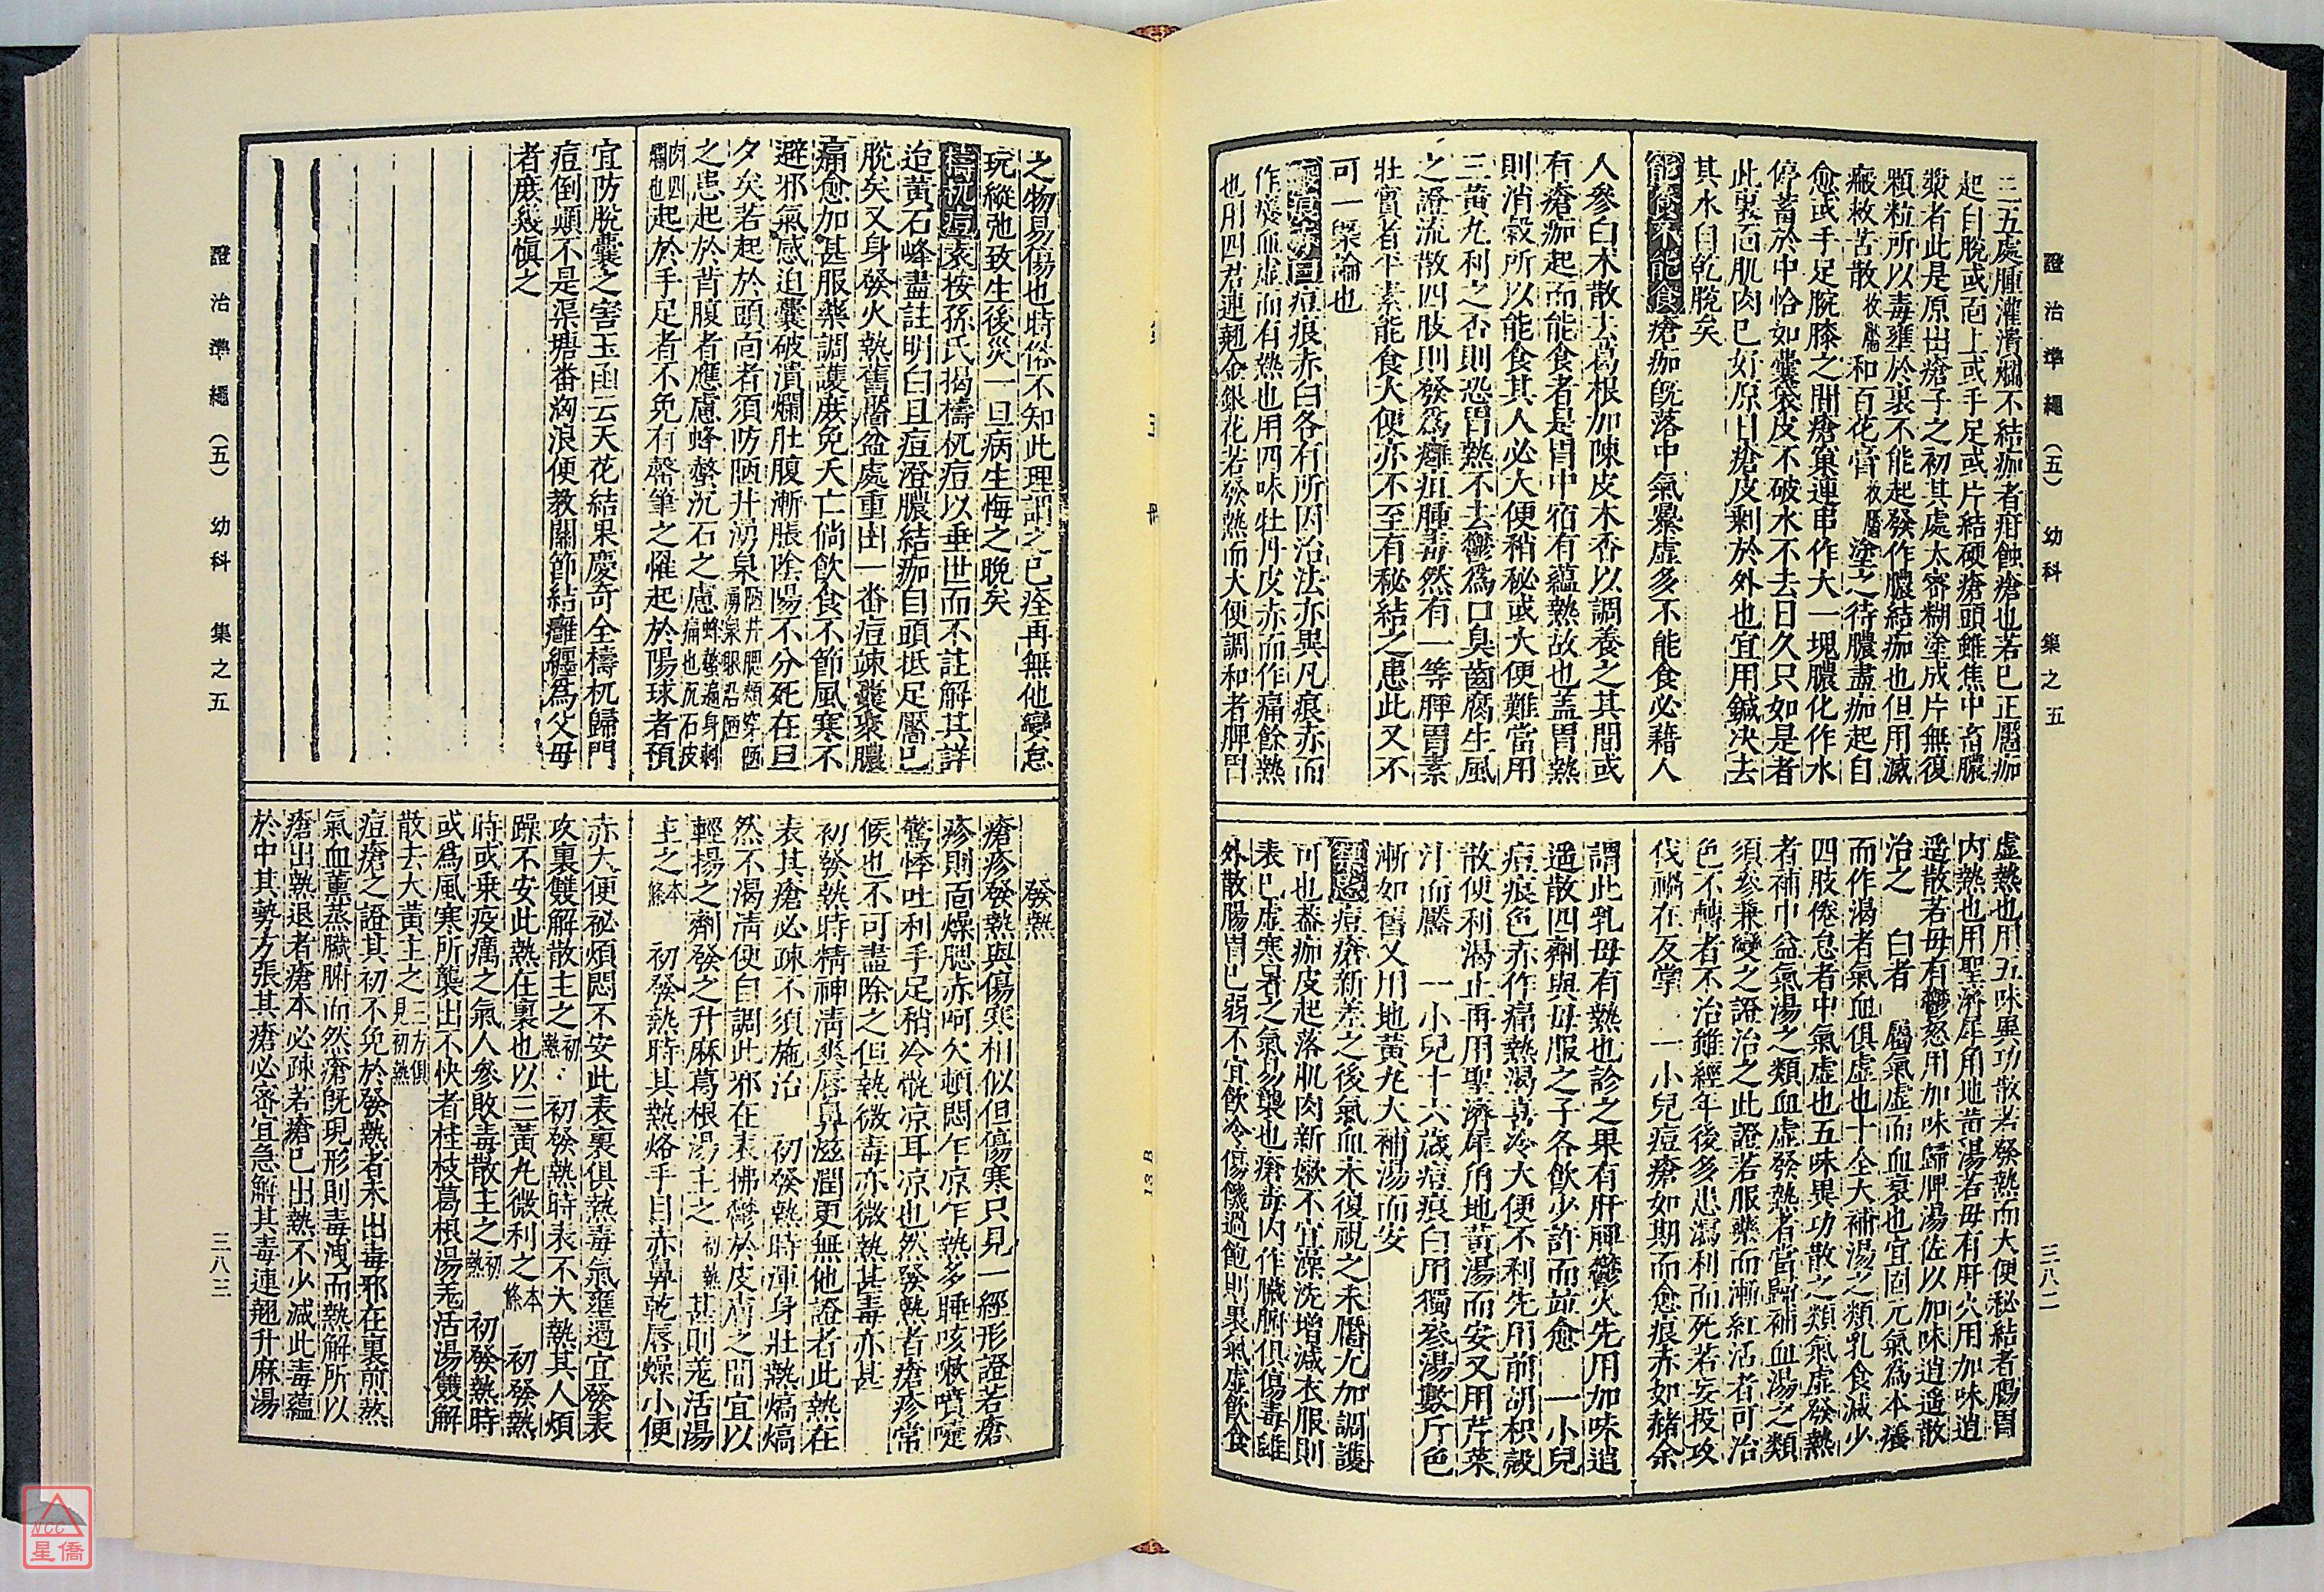 證治準繩（五）　幼科　集之五
三八二
三五處腫灌潰爛不結痂者疳蝕瘡也若已正靨痂
起自脫或面上或手足或片結硬瘡頭雖焦中畜膿
漿者此是原出瘡子之初其處太密糊塗成片無復
顆粒所以毒壅於裏不能起發作膿結痂也但用滅
瘢救苦散和百花膏塗之待膿盡痂起自
愈或手足腕膝之間瘡窠連串作大一塊膿化作水
停蓄於中恰如囊袋皮不破水不去日久只如是者
此裏面肌肉已好原日瘡皮剩於外也宜用鍼決去
其水自乾脫矣
能食不能食瘡痂旣落中氣暴虛多不能食必藉人
人參白朮散去葛根加陳皮木香以調養之其間或
有瘡痂起而能食者是胃中宿有蘊熱故也蓋胃熱
則消穀所以能食其人必大便稍秘或大便難當用
三黃丸利之否則恐胃熱不去鬱爲口臭齒腐生風
之證流散四肢則發爲癰疽腫毒然有一等脾胃素
壯實者平素能食大便亦不至有秘結之患此又不
可一槩論也
痘痕赤白各有所因治法亦異凡痕赤而
作癢血虛而有熱也用四味牡丹皮赤而作痛餘熱
也用四君連翹金銀花若發熱而大便調和者脾胃
虛熱也用五味異功散若發熱而大便秘結者腸胃
內熱也用聖濟犀角地黃湯若母有肝火用加味逍
遥散若母有鬱怒用加味歸脾湯佐以加味逍遥散
治之　白者　屬氣虛而血衰也宜固元氣為本癢
而作渴者氣血俱虛也十全大補湯之類乳食減少
四肢倦怠者中氣虛也五味異功散之類氣虛發熱
者補中益氣湯之類血虛發熱者當歸補血湯之類
須參兼變之證治之此證若服藥而漸紅活者可治
色不轉者不治雖經年後多患瀉利而死若妄投攻
伐禍在反掌　一小兒痘瘡如期而愈痕赤如赭余
謂此乳母有熱也診之果有肝脾鬱火先用加味逍
遥散四劑與母服之子各飲少許而竝愈　一小兒
痘痕色赤作痛熱渴喜冷大便不利先用前胡枳殼
散便利渴止再用聖濟犀角地黃湯而安又用芹菜
汁而靨　一小兒十六歲痘痕白用獨參湯數斤色
漸如舊又用地黃丸大補湯而安
痘瘡新差之後氣血未復視之未靨尤加調護
可也蓋痂皮起落肌肉新嫩不宜澡洗增減衣服則
表已虛寒暑之氣易襲也瘡毒內作臟腑俱傷毒雖
外散腸胃已弱不宜飲冷傷饑過飽則裏氣虛飲食
13 B
之物易傷也時俗不知此理謂之已痊再無他變怠
玩縱弛致生後災一旦病生悔之晚矣
檮杌痘表按孫氏揭檮杌痘以垂世而不註解其詳
迨黃石峰盡註明白且痘澄膿結痂自頭抵足靨已
脫矣又身發火熱舊靨盆處重出一畨痘疎囊聚膿
痛愈加甚服藥調護庶免夭亡倘飲食不節風寒不
避邪氣感迫囊破潰爛肚腹漸脹陰陽不分死在旦
夕矣若起於頭面者須防陋井湧泉陋井腮類穿陋湧泉眼沿陋
之患起於背腹者應慮蜂螫沉石之慮蜂螫遍身刺痛也沉石皮
肉四爛也起於手足者不免有罄筆之懼起於陽球者預
宜防脫囊之害玉函云天花結果慶奇全檮杌歸門
痘倒顛不是渠塘畨洶浪便教關節結癰纏爲父母
者庶幾愼之
發熱
瘡疹發熱與傷寒相似但傷寒只見一經形證若瘡
疹則面燥腮赤呵欠頓悶乍凉乍熱多睡咳嗽噴嚏
驚悸吐利手足稍冷骩凉耳凉也然發熱者瘡疹常
候也不可盡除之但熱微毒亦微熱甚毒亦甚
初發熱時精神清爽唇鼻滋潤更無他證者此熱在
表其瘡必疎不須施治　初發熱時渾身壯熱熇熇
然不渴清便自調此邪在表拂鬱於皮膚之間宜以
輕揚之劑發之升麻葛根湯主之初熱甚則羌活湯
主之本條　初發熱時其熱烙手目赤鼻乾唇燥小便
赤大便祕煩悶不安此表裏俱熱毒氣壅遏宜發表
攻裏雙解散主之初熱　初發熱時表不大熱其人煩
躁不安此熱在裏也以三黃丸微利之本條　初發熱
時或乘疫癘之氣人參敗毒散主之初熱　初發熱時
或爲風寒所襲出不快者桂枝葛根湯羌活湯雙解
散去大黃主之三方俱見初熱
痘瘡之證其初不免於發熱者未出毒邪在裏煎熬
氣血薰蒸臟腑而然瘡旣現形則毒洩而熱解所以
瘡出熱退者瘡本必疎若瘡已出熱不少減此毒蘊
於中其勢方張其瘡必密宜急解其毒連翹升麻湯
證治準繩（五）　幼科　集之五
三八三
NCC
星僑